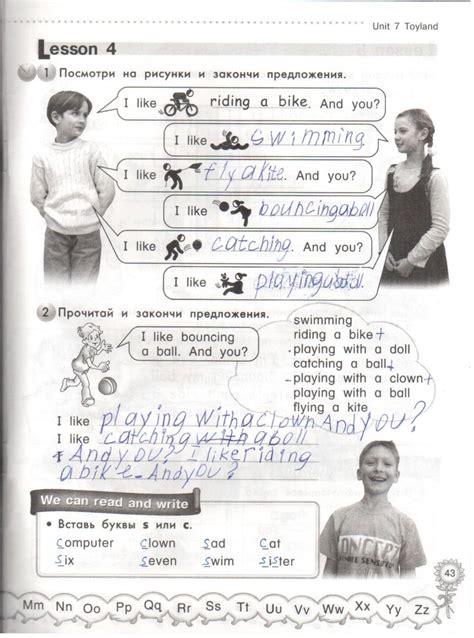 Unit 7 Toyland
Lesson 4
1 Посмотри на рисунки и закончи предложения.
I like riding a bike. And you?
I like swimming
I like flyakite. And you?
I like bouncingaball
I like catching. And you?
I like playing
2 Прочитай и закончи предложения.
I like bouncing
a ball. And you?
swimming
riding a bike +
- playing with a doll
catching a ball +
- playing with a clown +
- playing with a ball
flying a kite
I like playing withaclown AndyOU?
I like catching with aball
AndyOU? I likeriding
abike-AndyOU?
We can read and write
• Вставь буквы s или c.
Computer Clown Sad Cat
Six Seven Swim Sister
CONCEPT
43
Mm Nn Oo Pp Qq Rr Ss Tt Uu Vv Ww Xx Yy Zz